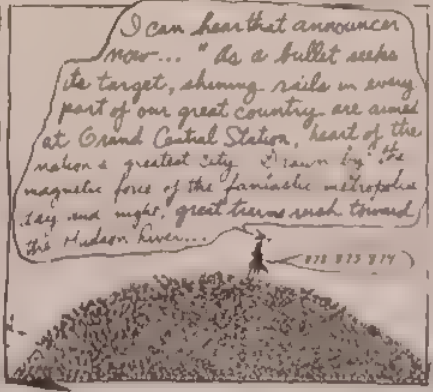 I can hear that announcer
now... " As a bullet seeks
its target, shining rails in every
part of our great country are aimed
at Grand Central Station, heart of the
nation's greatest city Drawn by the
magnetic force of the fantastic metropolis
day and night, great trains rush toward
the Hudson River...